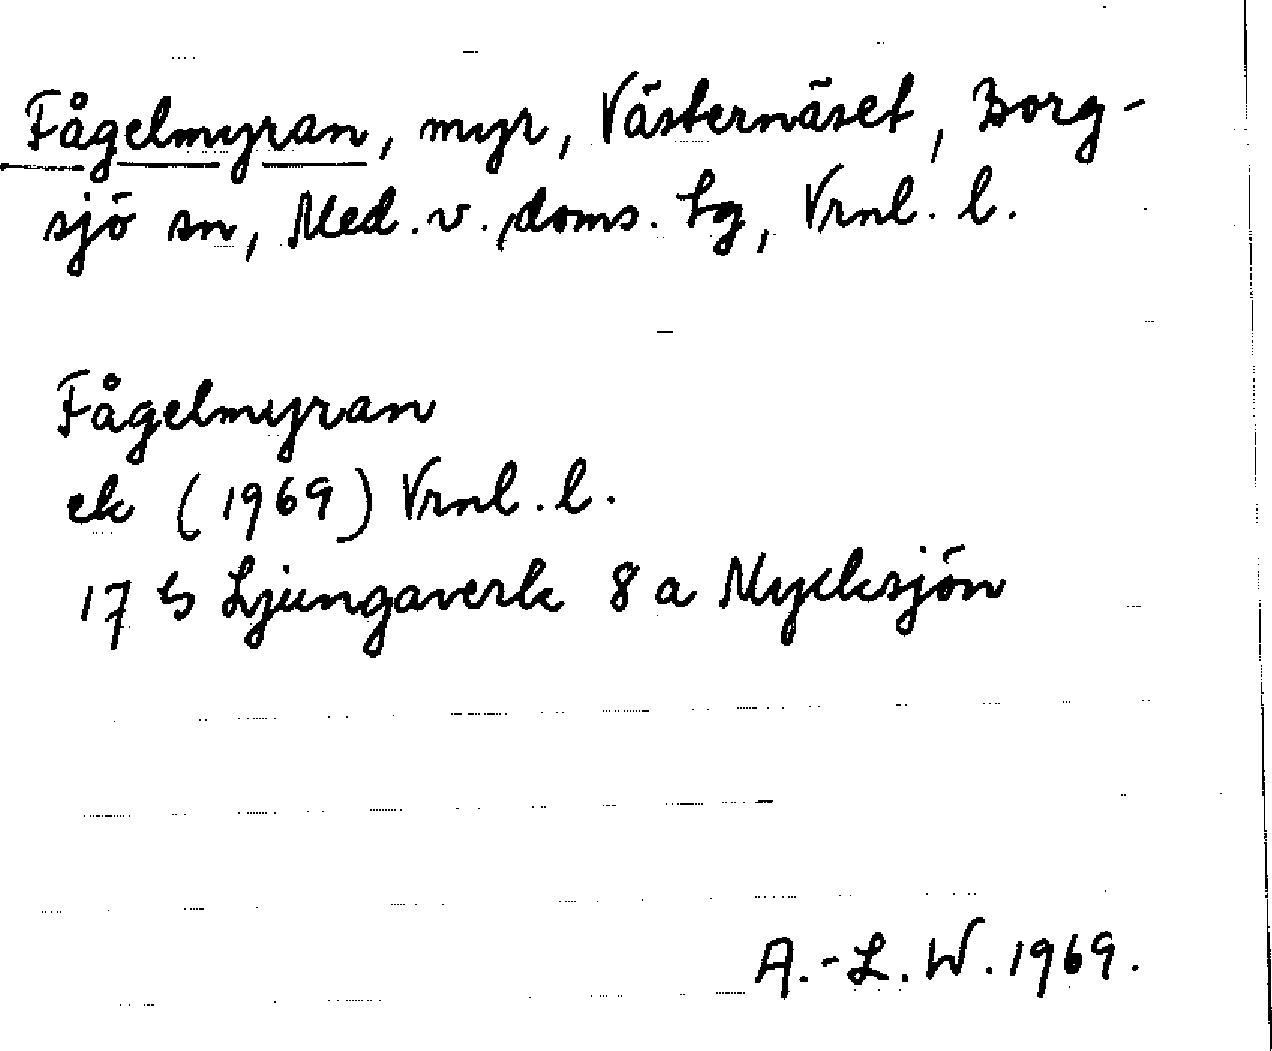 Fågelmyran, myr, Västernäset, Borg-
sjö sn, Med. v. doms. tg, Vrnl. l.
Fågelmyran
ek (1969) Vrnl. l.
17 G Ljungaverk 8 a Nycksjön
A.-L. W. 1969.